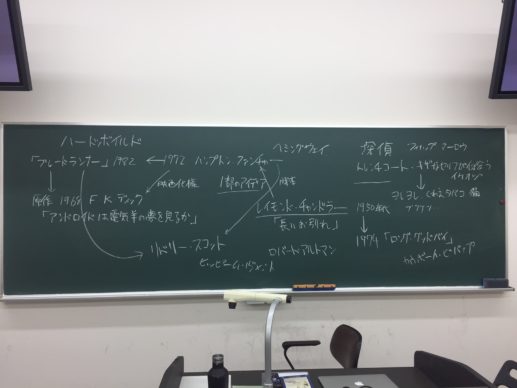 ハードボイルド
「ブレードランナー」1982 ← 1972 ハンプトン・ファンチャー
ヘミングウェイ
探偵 フィリップ・マーロウ
トレンチコート・キザなセリフの似合う
イケオジ
映画化権
1部のアイデア
原作 1968 F K ディック
「アンドロイドは電気羊の夢を見るか」
レイモンド・チャンドラー
「長いお別れ」
1950年代
ヨレヨレ くわえタバコ 猫
リドリー・スコット
ロバート・アルトマン
1974「ロング・グッドバイ」
カウボーイ・ビバップ